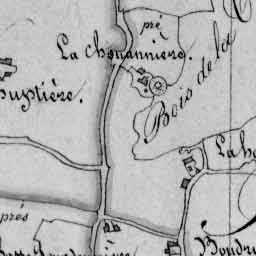 pré
La Chouannière.
Bois de la
uptière.
La h
prés
Boudr